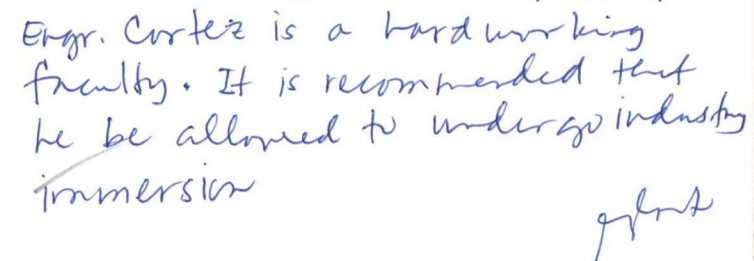 Engr. Cortez is a hardworking
faculty. It is recommended that
he be allowed to undergo industry
immersion